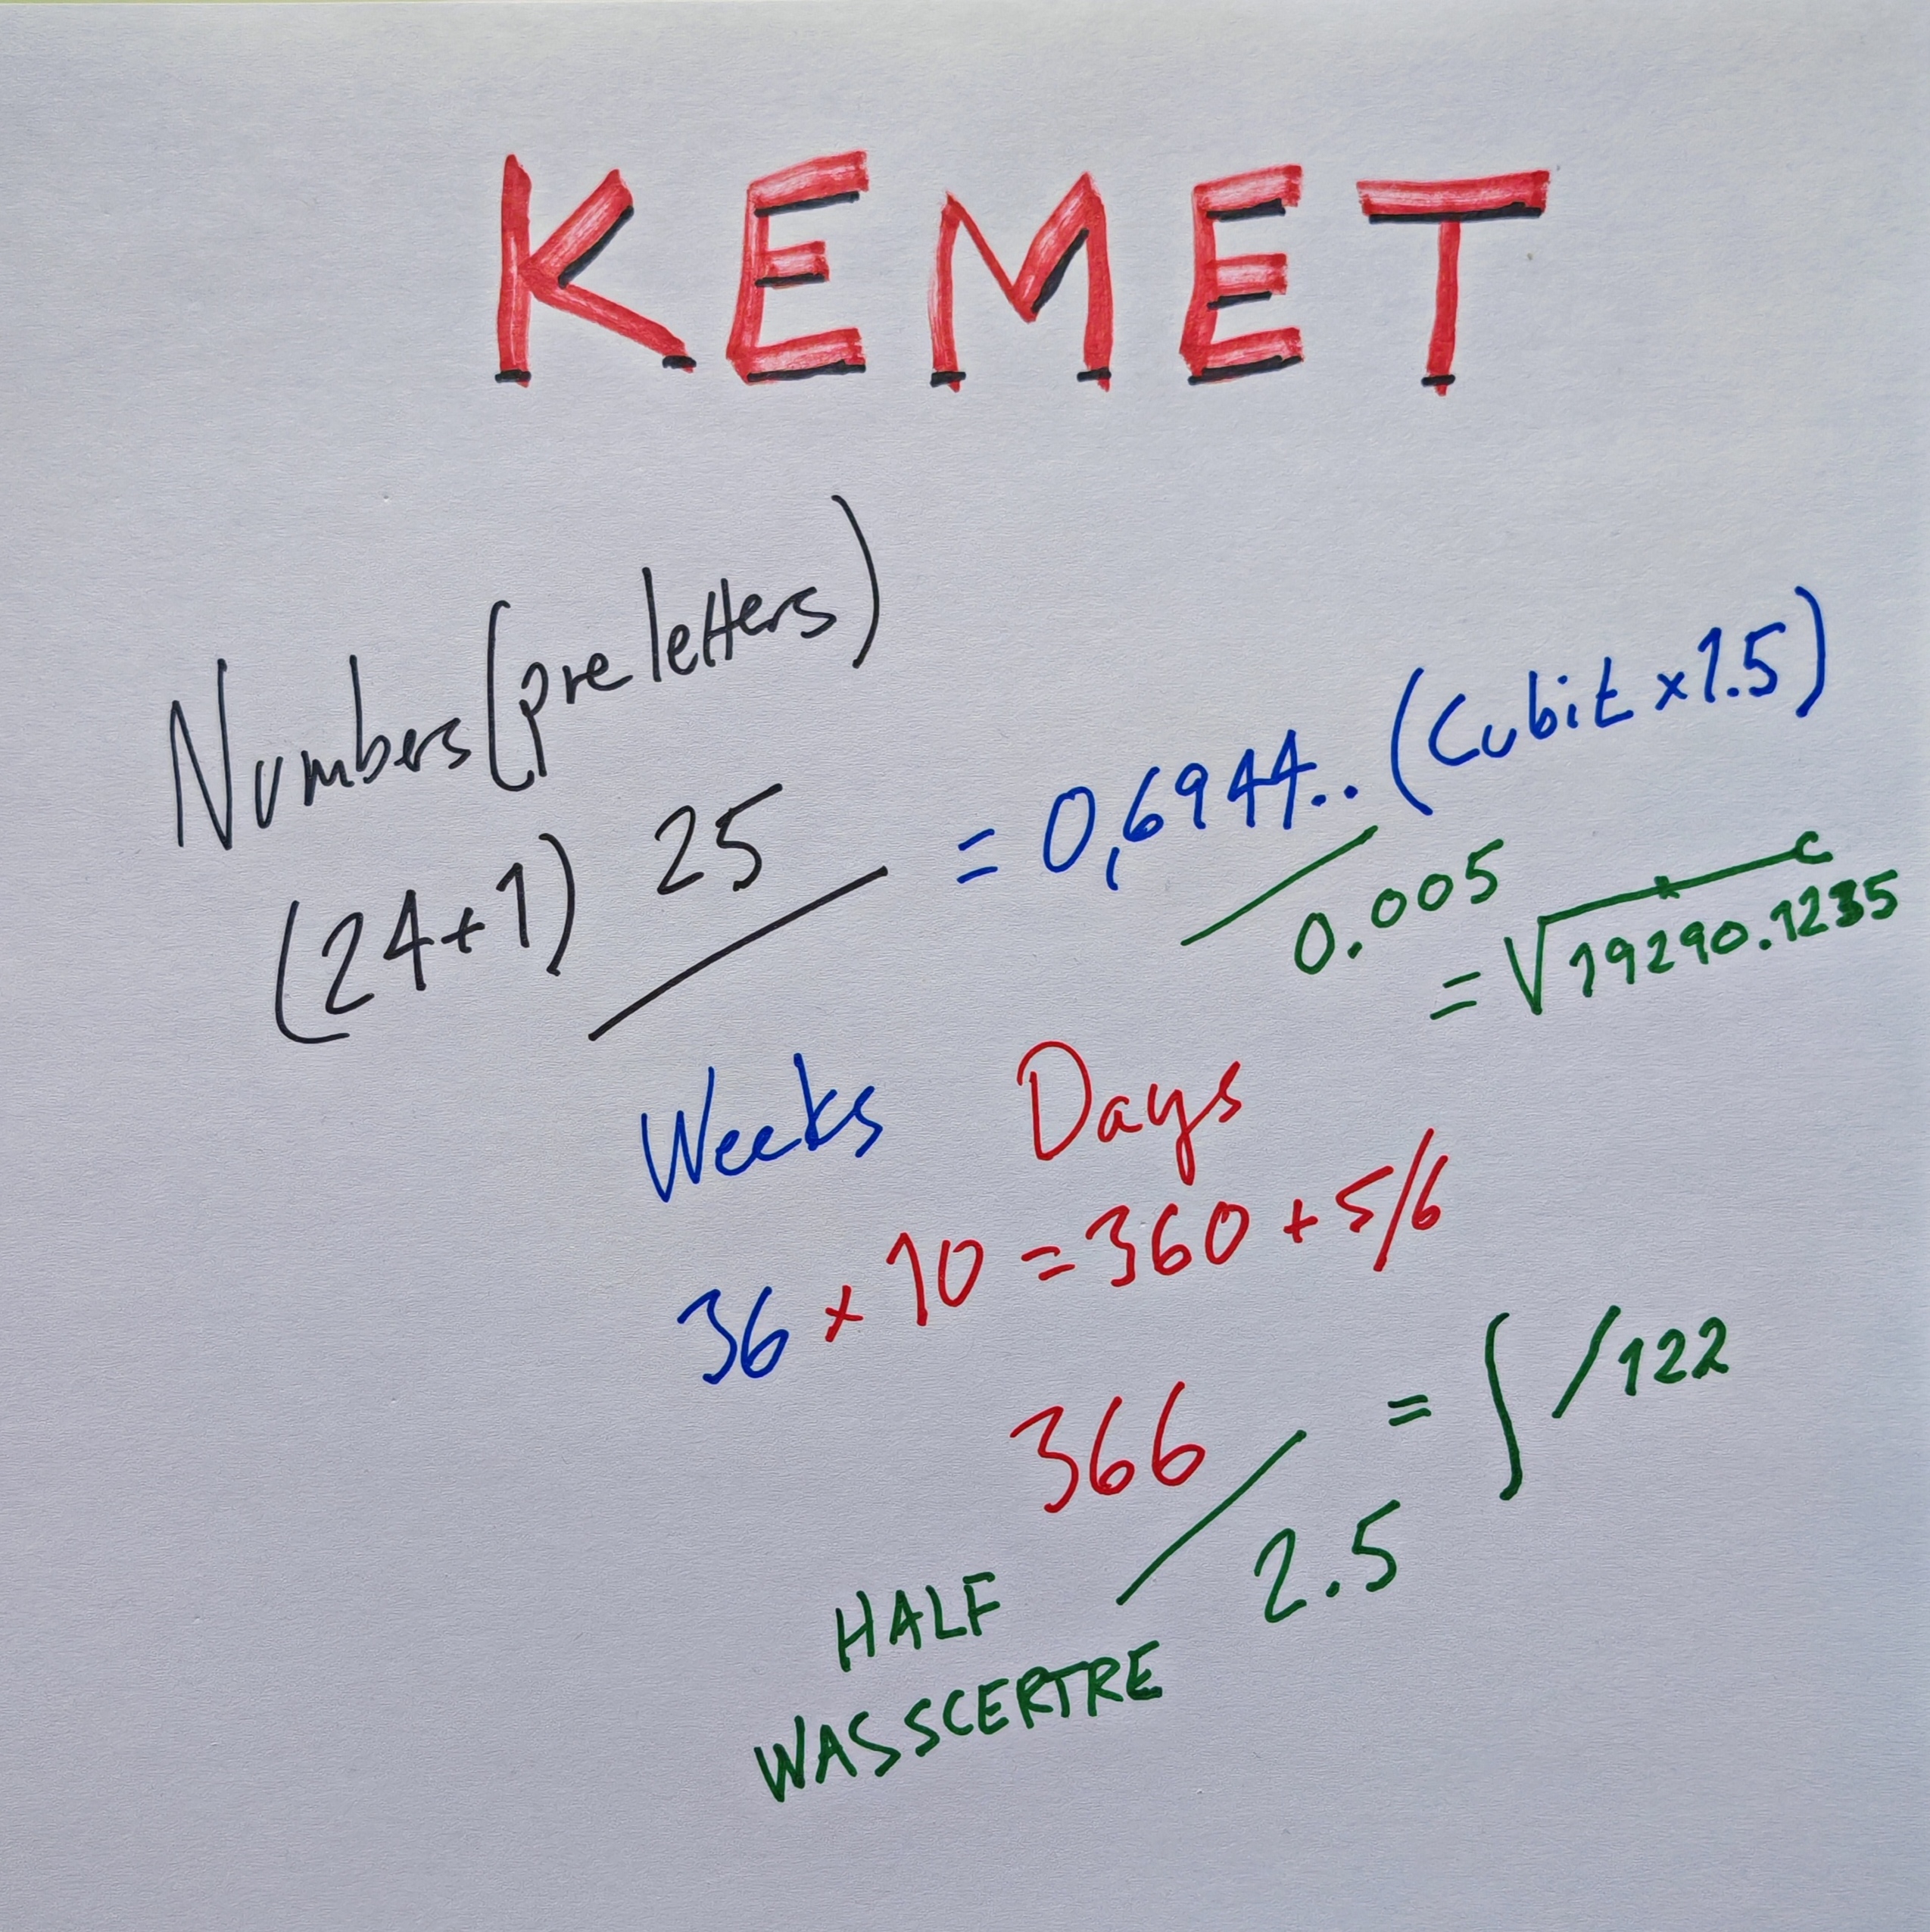 KEMET
Numbers (pre letters)
(24+1) 25 = 0,6944.. (Cubit x 1.5)
0.005
= √19290.1235
Weeks Days
36 x 10 = 360 + 5/6
366 = ∫ /122
2.5
HALF
WASSCERTRE